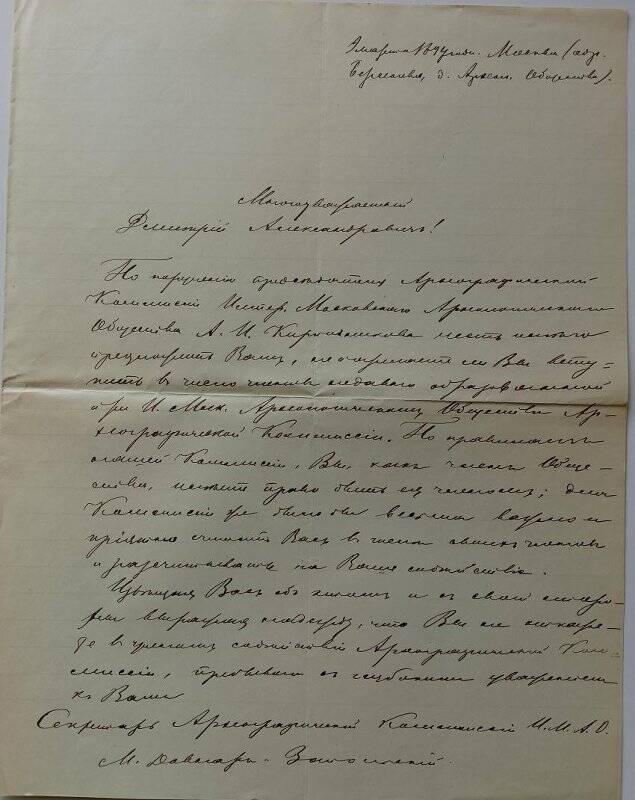 9 марта 1897 года. Москва (
Берсеневка, д. Археол. Общества).
Многоуважаемый
Дмитрій Александровичъ!
По порученію предсѣдателя Археографической
Коммиссіи Импер. Московскаго Археологическаго
Общества А. И. Кирпичникова честь имѣю
предложить Вамъ, не пожелаете ли Вы всту-
пить въ число членовъ недавно образовавшейся
при И. Моск. Археологическомъ Обществѣ Ар-
хеографической Коммиссіи. По правиламъ
нашей Коммиссіи, Вы, какъ членъ Обще-
ства, имѣете право быть ея членомъ; для
Коммиссіи же было бы весьма важно и
пріятно считать Васъ въ числѣ своихъ членовъ
и разсчитывать на Ваше содѣйствіе.
Извѣщая Васъ объ этомъ и съ своей сторо-
ны выражая надежду, что Вы не откаже-
те въ содѣйствіи Археографической Ком-
миссіи, пребываю съ глубокимъ уваженіемъ
къ Вамъ
Секретарь Археографической Коммиссіи И.М.А.О.
М. Довнаръ-Запольскій.